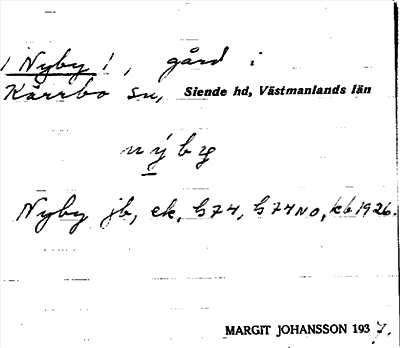 ! Nyby !, gård i
Kärrbo sn, Siende hd, Västmanlands län
nýby
Nyby jb, ek, G74, G74NO, kb 1926.
MARGIT JOHANSSON 1937.